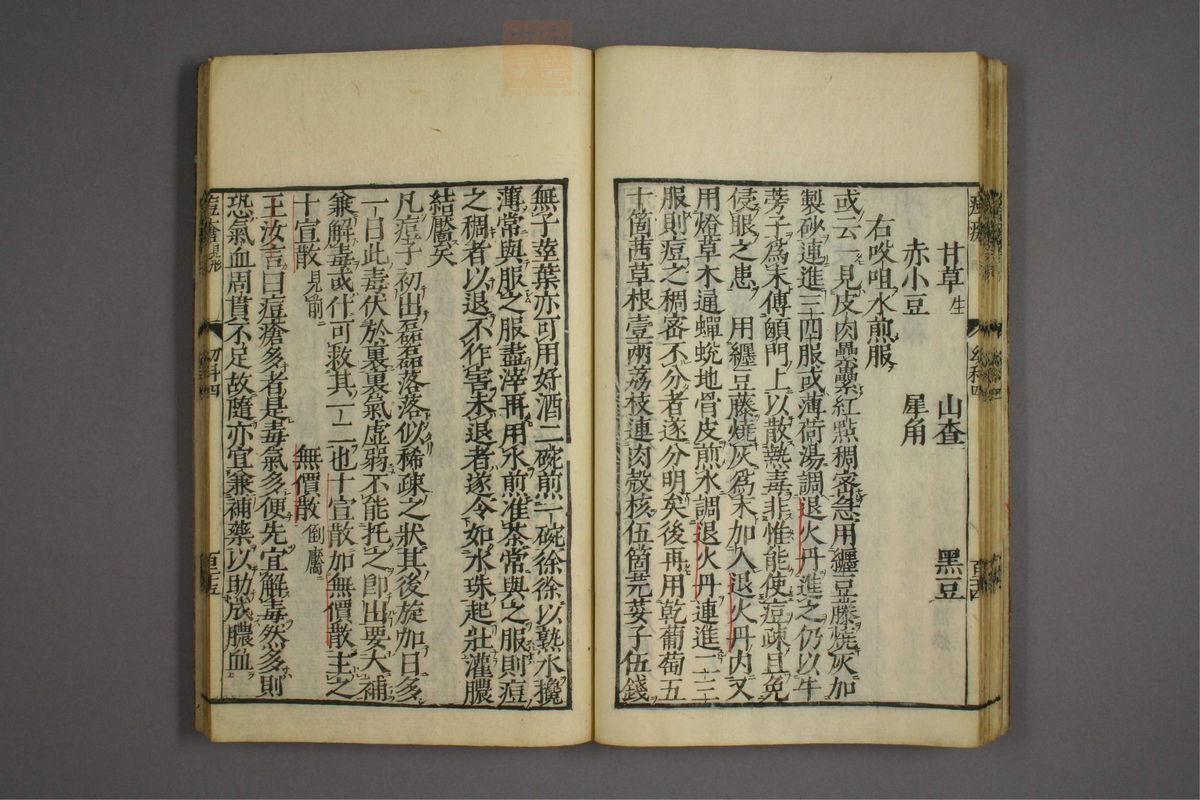 甘草生 山查 黑豆
赤小豆 犀角
右㕮咀水煎服
或云一見皮肉纍纍紅點稠密急用纏豆藤燒灰加
製砂連進三四服或薄荷湯調退火丹進之仍以牛
蒡子爲末傅顖門上以散熱毒非惟能使痘疎且免
侵眼之患 用纏豆藤燒灰爲末加入退火丹内又
用燈草木通蟬蛻地骨皮煎水調退火丹連進二三
服則痘之稠密不分者遂分明矣後再用乾葡萄五
十箇茜草根壹兩荔枝連肉殼核伍箇芫荽子伍錢
無子莖葉亦可用好酒二碗煎一碗徐徐以熟水攙
薄常與服之服盡滓再用水煎准茶常與之服則痘
之稠者以退不作害未退者遂令如水珠起壯灌膿
結靨矣
凡痘子初出磊磊落落似稀疎之狀其後旋加日多
一日此毒伏於裏裏氣虛弱不能托之即出要大補
兼解毒或什可救其一二也十宣散加無價散主之
十宣散見前 無價散倒靨
王汝言曰痘瘡多者是毒氣多便先宜解毒然多則
恐氣血周貫不足故隨亦宜兼補藥以助成膿血
痘瘡見形 幼科四 百十五